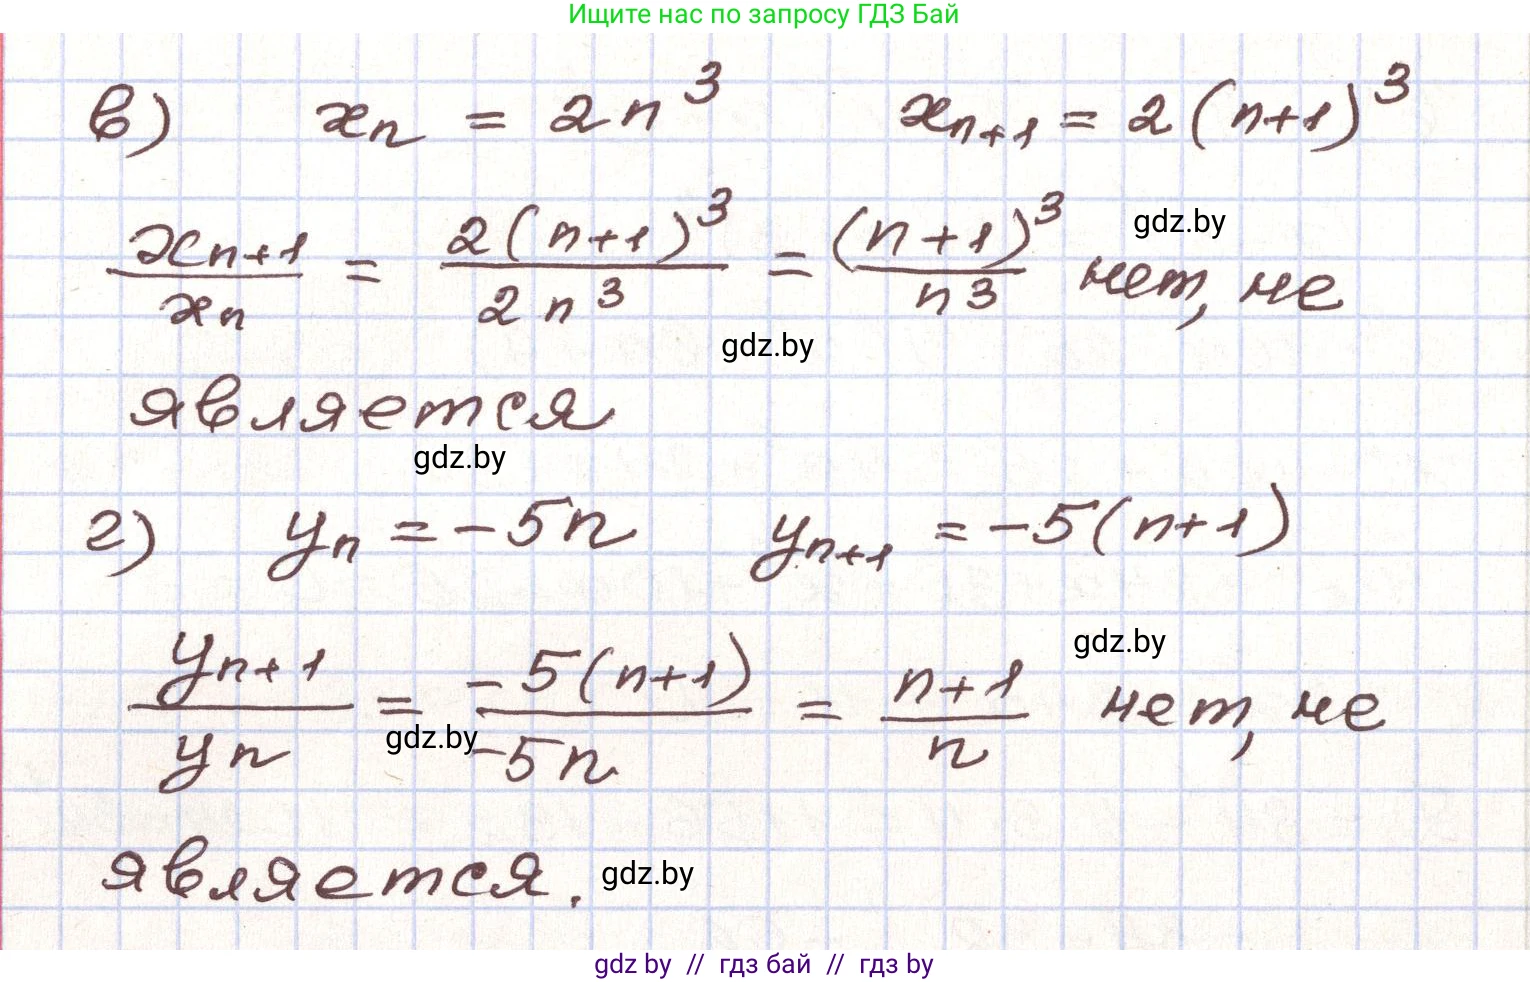 Ищите нас по запросу ГДЗ Бай
в) xₙ = 2n³ xₙ₊₁ = 2(n+1)³
xₙ₊₁/xₙ = 2(n+1)³/2n³ = (n+1)³/n³ нет, не
gdz.by
gdz.by
является
gdz.by
г) yₙ = -5n yₙ₊₁ = -5(n+1)
gdz.by
yₙ₊₁/yₙ = -5(n+1)/-5n = n+1/n нет, не
gdz.by
является.
gdz.by
gdz by // гдз бай // гдз by